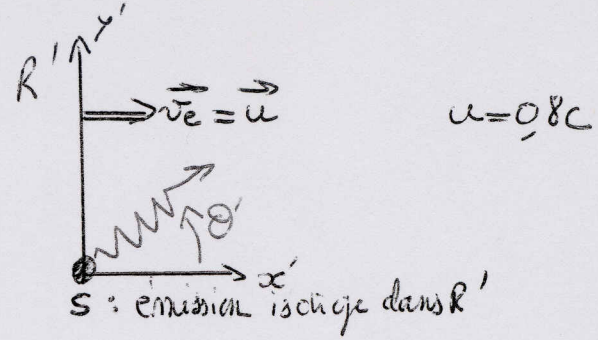 y'
R'
→ve = →u u=0,8c
θ'
x'
S : émission isotope dans R'